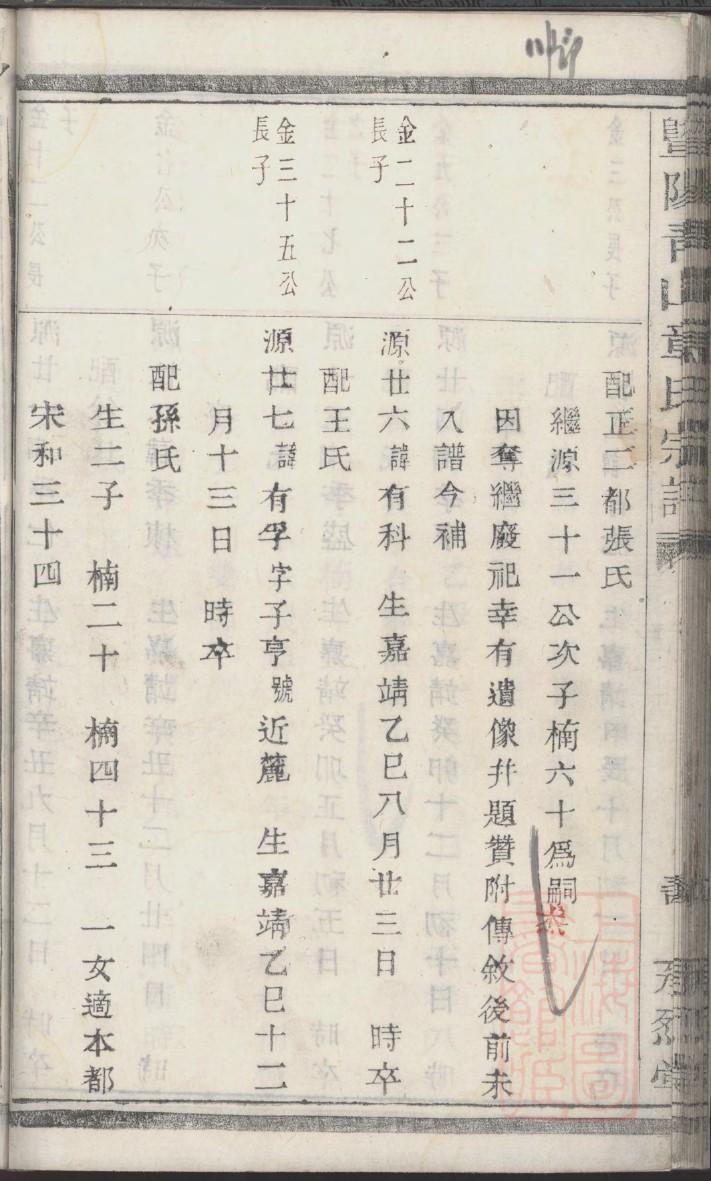 暨陽青山章氏宗譜
配正二都張氏
繼源三十一公次子楠六十爲嗣
因奪繼廢祀幸有遺像幷題贊附傳敘後前未
入譜今補
金二十二公
長子
源廿六諱有科 生嘉靖乙巳八月廿三日 時卒
配王氏
金三十五公
長子
源廿七諱有孚字子亨號近麓 生嘉靖乙巳十二
月十三日 時卒
配孫氏
生二子 楠二十 楠四十三 一女適本都
宋和三十四